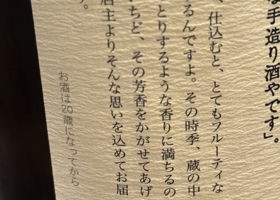 な手造り酒やです」。
、仕込むと、とてもフルーティな
るんですよ。その時季、蔵の中
とりするような香りに満ちるの
ちど、その芳香をかがせてあげ
店主よりそんな思いを込めてお届
す。
お酒は20歳になってから